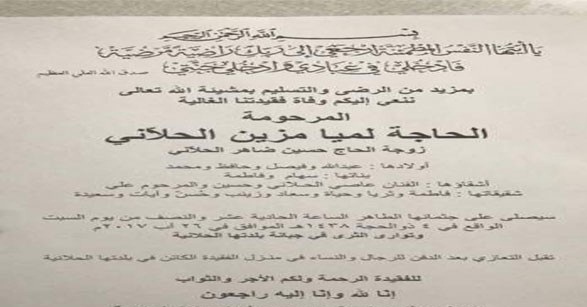 بسم الله الرحمن الرحيم
يا أيتها النفس المطمئنة ارجعي إلى ربك راضية مرضية
فادخلي في عبادي وادخلي جنتي
صدق الله العلي العظيم
بمزيد من الرضى والتسليم بمشيئة الله تعالى
ننعى إليكم وفاة فقيدتنا الغالية
المرحومة
الحاجة لميا مزين الحلاني
زوجة الحاج حسين ضاهر الحلاني
أولادها : عبدالله وفيصل وحافظ ومحمد
بناتها : سهام وفاطمة
أشقاؤها : الفنان عاصي الحلاني وحسين والمرحوم علي
شقيقاتها : فاطمة وثريا وحياة وسعاد وزينب وحُسن وآيات وسعيدة
سيصلى على جثمانها الطاهر الساعة الحادية عشر والنصف من يوم السبت
الواقع في ٤ ذو الحجة ١٤٣٨هـ الموافق في ٢٦ آب ٢٠١٧م
وتوارى الثرى في جبانة بلدتها الحلانية
تقبل التعازي بعد الدفن للرجال والنساء في منزل الفقيدة الكائن في بلدتها الحلانية
للفقيدة الرحمة ولكم الأجر والثواب
إنا لله وإنا إليه راجعون